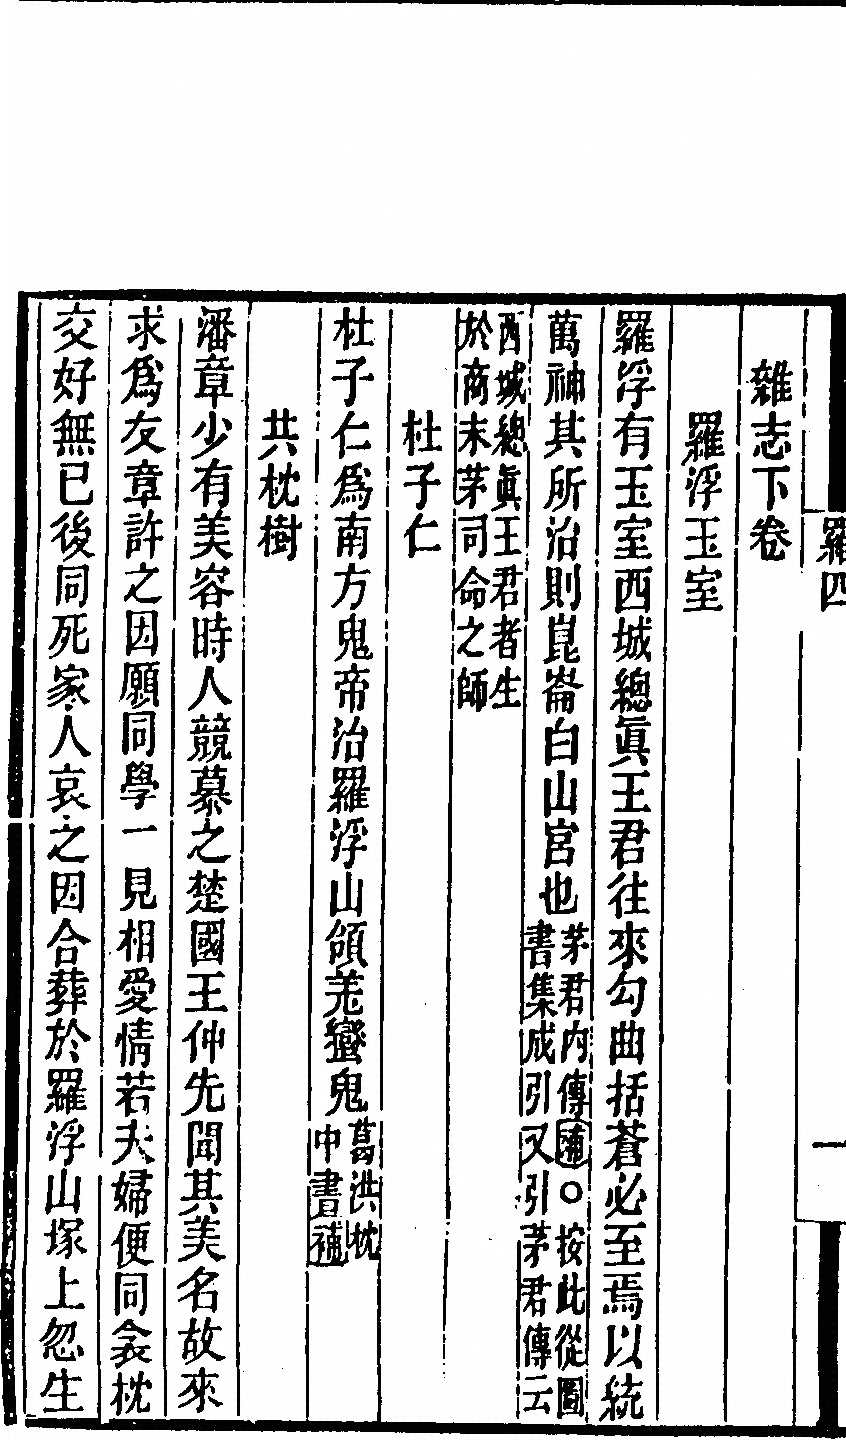 羅四
一
雜志下卷
羅浮玉室
羅浮有玉室西城總眞王君往來勾曲括蒼必至焉以統
萬神其所治則崑崙白山宮也茅君內傳補○按此從圖
書集成引又引茅君傳云
西城總眞王君者生
於商末茅司命之師
杜子仁
杜子仁爲南方鬼帝治羅浮山領羌蠻鬼葛洪枕
中書補
共枕樹
潘章少有美容時人競慕之楚國王仲先聞其美名故來
求爲友章許之因願同學一見相愛情若夫婦便同衾枕
交好無已後同死家人哀之因合葬於羅浮山塚上忽生